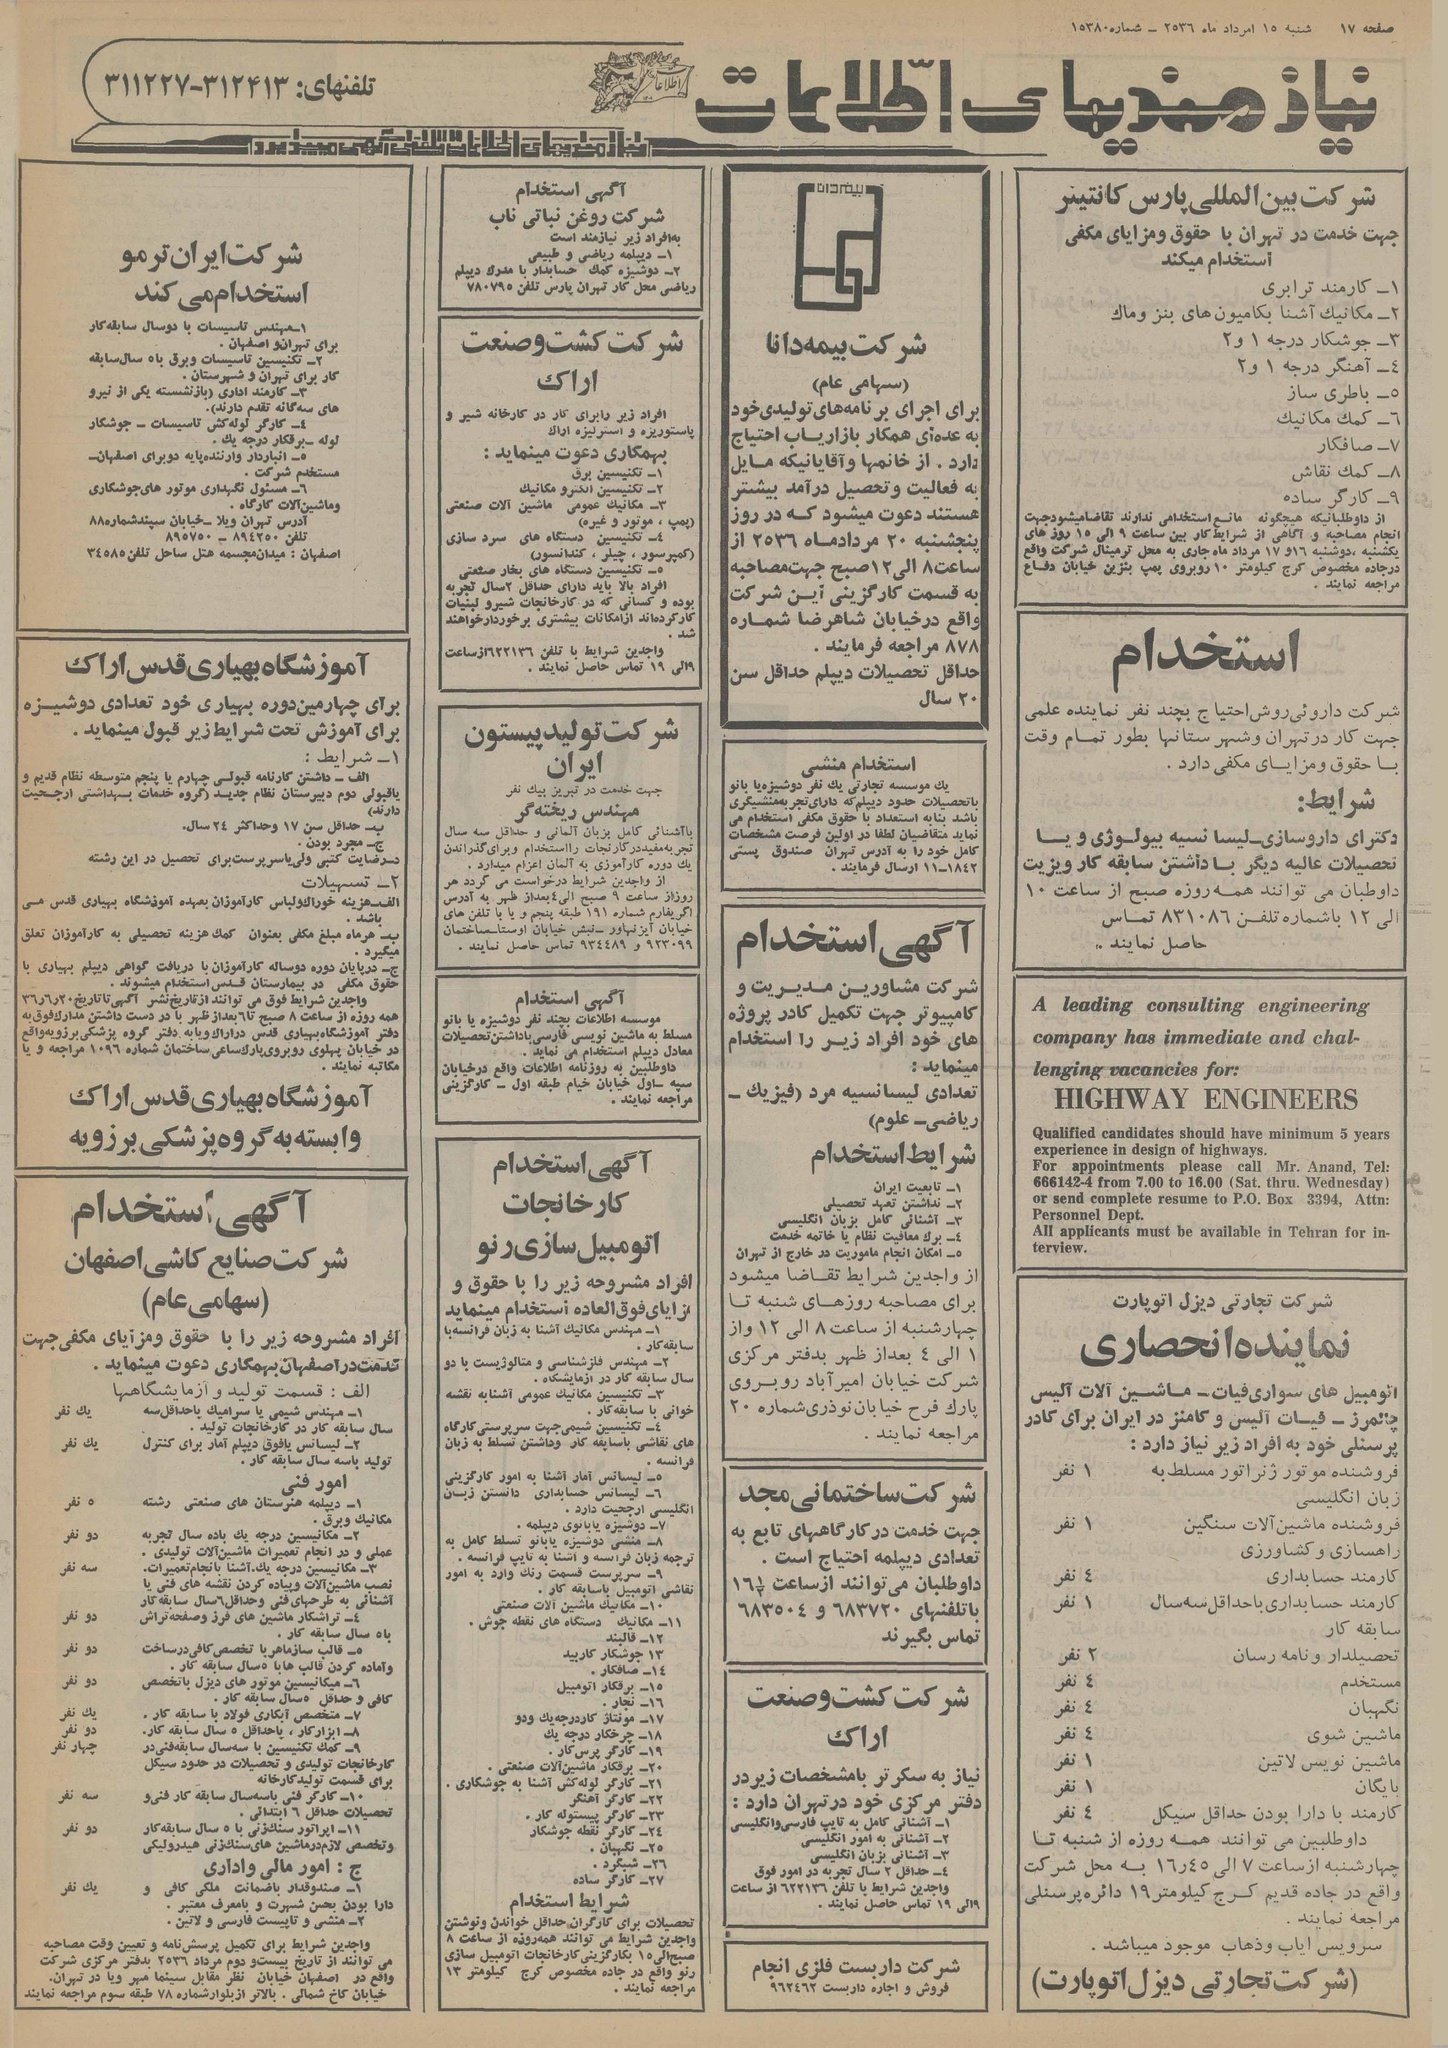 صفحه ۱۷ شنبه ۱۵ امرداد ماه ۲۵۳۶ ـ شماره ۱۵۳۸۰
نیازمندیهای اطلاعات
تلفنهای: ۳۱۲۴۱۳-۳۱۱۲۲۷
نیازمندیهای اطلاعات تلفنی آگهی میپذیرد
شرکت بین‌المللی پارس کانتینر
جهت خدمت در تهران با حقوق ومزایای مکفی
استخدام میکند
۱ـ کارمند ترابری
۲ـ مکانیك آشنا بکامیون‌های بنز وماك
۳ـ جوشکار درجه ۱ و۲
٤ـ آهنگر درجه ۱ و۲
۵ـ باطری ساز
۶ـ کمك مکانیك
۷ـ صافکار
۸ـ کمك نقاش
۹ـ کارگر ساده
از داوطلبانیکه هیچگونه مانع استخدامی ندارند تقاضامیشودجهت
انجام مصاحبه و آگاهی از شرایط کار بین ساعت ۹ الی ۱۵ روز های
یکشنبه ،دوشنبه ۱۶و ۱۷ مرداد ماه جاری به محل ترمینال شرکت واقع
درجاده مخصوص کرج کیلومتر ۱۰ روبروی پمپ بنزین خیابان دفاع
مراجعه نمایند .
استخدام
شرکت داروئی روش احتیاج بچند نفر نماینده علمی
جهت کار در تهران وشهرستانها بطور تمام وقت
با حقوق ومزایای مکفی دارد .
شرایط:
دکترای داروسازی ـ لیسانسیه بیولوژی و یا
تحصیلات عالیه دیگر با داشتن سابقه کار ویزیت
داوطبان می توانند همه روزه صبح از ساعت ۱۰
الی ۱۲ باشماره تلفن ۸۳۱۰۸۶ تماس
حاصل نمایند .
A leading consulting engineering
company has immediate and chal-
lenging vacancies for:
HIGHWAY ENGINEERS
Qualified candidates should have minimum 5 years
experience in design of highways.
For appointments please call Mr. Anand, Tel:
666142-4 from 7.00 to 16.00 (Sat. thru. Wednesday)
or send complete resume to P.O. Box 3394, Attn:
Personnel Dept.
All applicants must be available in Tehran for in-
terview.
شرکت تجارتی دیزل اتوپارت
نماینده انحصاری
اتومبیل های سواری فیات ـ ماشین آلات آلیس
چالمرز ـ فیات آلیس و کامنز در ایران برای کادر
پرسنلی خود به افراد زیر نیاز دارد :
فروشنده موتور ژنراتور مسلط به ۱ نفر
زبان انگلیسی
فروشنده ماشین‌آلات سنگین ۱ نفر
راهسازی وکشاورزی
کارمند حسابداری ٤ نفر
کارمند حسابداری باحداقل سه‌سال ۱ نفر
سابقه کار
تحصیلدار ونامه رسان ۲ نفر
مستخدم ٤ نفر
نگهبان ٤ نفر
ماشین شوی ٤ نفر
ماشین نویس لاتین ۱ نفر
بایگان ۱ نفر
کارمند با دارا بودن حداقل سیکل ٤ نفر
داوطلبین می توانند همه روزه از شنبه تا
چهارشنبه از ساعت ۷ الی ۱۶ر٤۵ به محل شرکت
واقع در جاده قدیم کرج کیلومتر ۱۹ دائره پرسنلی
مراجعه نمایند .
سرویس ایاب وذهاب موجود میباشد .
(شرکت تجارتی دیزل اتوپارت)
بیمه دانا
شرکت بیمه دانا
(سهامی عام)
برای اجرای برنامه‌های تولیدی خود
به عده‌ای همکار بازاریاب احتیاج
دارد . از خانمها وآقایانیکه مایل
به فعالیت وتحصیل درآمد بیشتر
هستند دعوت میشود که در روز
پنجشنبه ۲۰ مردادماه ۲۵۳۶ از
ساعت ۸ الی ۱۲صبح جهت مصاحبه
به قسمت کارگزینی این شرکت
واقع درخیابان شاهرضا شماره
۸۷۸ مراجعه فرمایند .
حداقل تحصیلات دیپلم حداقل سن
۲۰ سال
استخدام منشی
یك موسسه تجارتی یك نفر دوشیزه‌یا بانو
باتحصیلات حدود دیپلم که دارای تجربه‌منشیگری
باشد بنابه استعداد با حقوق مکفی استخدام می
نماید متقاضیان لطفا در اولین فرصت مشخصات
کامل خود را به آدرس تهران صندوق پستی
۱۸٤۲ـ۱۱ ارسال فرمایند .
آگهی استخدام
شرکت مشاورین مدیریت و
کامپیوتر جهت تکمیل کادر پروژه
های خود افراد زیر را استخدام
مینماید :
تعدادی لیسانسیه مرد (فیزیك ـ
ریاضی ـ علوم)
شرایط استخدام
۱ـ تابعیت ایران
۲ـ نداشتن تعهد تحصیلی
۳ـ آشنائی کامل بزبان انگلیسی
٤ـ برك معافیت نظام یا خاتمه خدمت
۵ـ امکان انجام ماموریت در خارج از تهران
از واجدین شرایط تقاضا میشود
برای مصاحبه روزهای شنبه تا
چهارشنبه از ساعت ۸ الی ۱۲ واز
۱ الی ٤ بعداز ظهر بدفتر مرکزی
شرکت خیابان امیرآباد روبروی
پارك فرح خیابان نوذری شماره ۲۰
مراجعه نمایند .
شرکت ساختمانی مجد
جهت خدمت درکارگاههای تابع به
تعدادی دیپلمه احتیاج است .
داوطلبان می‌توانند از ساعت
باتلفنهای ۶۸۳۷۲۰ و ۶۸۳۵۰٤
تماس بگیرند
شرکت کشت وصنعت
اراك
نیاز به سکرتر بامشخصات زیر در
دفتر مرکزی خود در تهران دارد :
۱ـ آشنائی کامل به تایپ فارسی وانگلیسی
۲ـ آشنائی به امور انگلیسی
۳ـ آشنائی بزبان انگلیسی
٤ـ حداقل ۲ سال تجربه در امور فوق
واجدین شرایط با تلفن ۶۲۲۱۳۶ از ساعت
۹الی ۱۹ تماس حاصل نمایند .
شرکت داربست فلزی انجام
فروش و اجاره داربست ۹۶۲٤۶۲
آگهی استخدام
شرکت روغن نباتی ناب
به‌افراد زیر نیازمند است
۱ـ دیپلمه ریاضی و طبیعی
۲ـ دوشیزه کمك حسابدار با مدرك دیپلم
ریاضی محل کار تهران پارس تلفن ۷۸۰۷۹۵
شرکت کشت وصنعت
اراك
افراد زیر رابرای کار در کارخانه شیر و
پاستوریزه و استرلیزه اراك
بهمکاری دعوت مینماید :
۱ـ تکنیسین برق
۲ـ تکنیسین الکترو مکانیك
۳ـ مکانیك عمومی ماشین آلات صنعتی
(پمپ ، موتور و غیره)
٤ـ تکنیسین دستگاه های سرد سازی
(کمپرسور ، چیلر ، کندانسور)
۵ـ تکنیسین دستگاه های بخار صنعتی
افراد بالا باید دارای حداقل ۲سال تجربه
بوده و کسانی که در کارخانجات شیرو لبنیات
کارکرده‌اند ازامکانات بیشتری برخوردارخواهند
شد .
واجدین شرایط با تلفن ۶۲۲۱۳۶ازساعت
۹الی ۱۹ تماس حاصل نمایند .
شرکت تولید پیستون
ایران
جهت خدمت در تبریز بیك نفر
مهندس ریخته‌گر
باآشنائی کامل بزبان آلمانی و حداقل سه سال
تجربه‌مفیددرکارنجات رااستخدام وبرای گذراندن
یك دوره کارآموزی به آلمان اعزام میدارد .
از واجدین شرایط درخواست می گردد هر
روزاز ساعت ۹ صبح الی٤ بعداز ظهر به آدرس
اگریفارم شماره ۱۹۱ طبقه پنجم و یا با تلفن های
خیابان آیزنهاور ـ نبش خیابان اوستا ـ ساختمان
۹۲۳۰۹۹ و ۹۳٤٤۸۹ تماس حاصل نمایند .
آگهی استخدام
موسسه اطلاعات بچند نفر دوشیزه یا بانو
مسلط به ماشین نویسی فارسی باداشتن تحصیلات
معادل دیپلم استخدام می نماید .
داوطلبین به روزنامه اطلاعات واقع درخیابان
سپه ـ اول خیابان خیام طبقه اول ـ کارگزینی
مراجعه نمایند .
آگهی استخدام
کارخانجات
اتومبیل سازی رنو
افراد مشروحه زیر را با حقوق و
مزایای فوق العاده استخدام مینماید
۱ـ مهندس مکانیك آشنا به زبان فرانسه با
سابقه کار .
۲ـ مهندس فلزشناسی و متالوژیست با دو
سال سابقه کار در آزمایشگاه .
۳ـ تکنیسین مکانیك عمومی آشنابه نقشه
خوانی با سابقه کار .
٤ـ تکنیسین شیمی جهت سرپرستی کارگاه
های نقاشی باسابقه کار وداشتن تسلط به زبان
فرانسه .
۵ـ لیسانس آمار آشنا به امور کارگزینی
۶ـ لیسانس حسابداری دانستن زبان
انگلیسی ارجحیت دارد .
۷ـ دوشیزه یابانوی دیپلمه .
۸ـ منشی دوشیزه یابانو تسلط کامل به
ترجمه زبان فرانسه و آشنا به تایپ فرانسه .
۹ـ سرپرست قسمت رنك وارد به امور
نقاشی اتومبیل باسابقه کار .
۱۰ـ مکانیك ماشین آلات صنعتی
۱۱ـ مکانیك دستگاه های نقطه جوش .
۱۲ـ قالبند
۱۳ جوشکار کاربید
۱٤ـ صافکار .
۱۵ـ برقکار اتومبیل
۱۶ـ نجار .
۱۷ـ مونتاژ کاردرجه‌یك ودو
۱۸ـ چرخکار درجه یك
۱۹ـ کارگر پرس‌کار .
۲۰ـ برقکار ماشین‌آلات صنعتی .
۲۱ـ کارگر لوله‌کش آشنا به جوشگاری .
۲۲ـ کارگر آهنگر
۲۳ـ کارگر پیستوله کار .
۲٤ـ کارگر نقطه جوشکار
۲۵ـ نگهبان .
۲۶ـ شبگرد .
۲۷ـ کارگر ساده
شرایط استخدام
تحصیلات برای کارگران حداقل خواندن ونوشتن
واجدین شرایط می توانند همه‌روزه از ساعت ۸
صبح‌الی ۱۵ بکارگزینی کارخانجات اتومبیل سازی
رنو واقع در جاده مخصوص کرج کیلومتر ۱۳
مراجعه نمایند .
شرکت ایران ترمو
استخدام می کند
۱ـمهندس تاسیسات با دوسال سابقه‌کار
برای تهران‌و اصفهان .
۲ـ تکنیسین تاسیسات وبرق با۵ سال‌سابقه
کار برای تهران و شهرستان .
۳ـ کارمند اداری (بازنشسته یکی از نیرو
های سه‌گانه تقدم دارند).
٤ـ کارگر لوله‌کش تاسیسات ـ جوشکار
لوله ـبرقکار درجه یك .
۵ـ انباردار وراننده‌پایه دوبرای اصفهان‌ـ
مستخدم شرکت .
۶ـ مسئول نگهداری موتور های‌جوشکاری
وماشین‌آلات کارگاه .
آدرس تهران ویلا ـخیابان سپندشماره۸۸
تلفن ۸۹٤۲۵۰ ـ ۸۹۵۷۵۰
اصفهان : میدان‌مجسمه هتل ساحل تلفن ۳٤۵۸۵
آموزشگاه بهیاری قدس اراك
برای چهارمین‌دوره بهیاری خود تعدادی دوشیزه
برای آموزش تحت شرایط زیر قبول مینماید .
۱ـ شرایط :
الف ـ داشتن کارنامه قبولی چهارم یا پنجم متوسطه نظام قدیم و
یاقبولی دوم دبیرستان نظام جدید (گروه خدمات بهداشتی ارجحیت
دارند)
ب‌ـ حداقل سن ۱۷ وحداکثر ۲٤ سال.
ج‌ـ مجرد بودن .
دـ رضایت کتبی ولی‌یاسرپرست‌برای تحصیل در این رشته
۲ـ تسهیلات
الف‌ـ هزینه خوراك ولباس کارآموزان بعهده آموزشگاه بهیاری قدس می
باشد .
ب‌ـ هرماه مبلغ مکفی بعنوان کمك هزینه تحصیلی به کارآموزان تعلق
میگیرد .
ج‌ـ درپایان دوره دوساله کارآموزان با دریافت گواهی دیپلم بهیاری با
حقوق مکفی در بیمارستان قدس استخدام میشوند .
واجدین شرایط فوق می توانند ازتاریخ نشر آگهی تاتاریخ ۲۰ر۶ر۳۶
همه روزه از ساعت ۸ صبح تا۶ بعداز ظهر با در دست داشتن مدارك فوق به
دفتر آموزشگاه بهیاری قدس دراراك ویابه دفتر گروه پزشکی برزویه واقع
در خیابان پهلوی روبروی پارك‌ساعی ساختمان شماره ۱۰۹۶ مراجعه و یا
مکاتبه نمایند .
آموزشگاه بهیاری قدس اراك
وابسته به گروه پزشکی برزویه
آگهی استخدام
شرکت صنایع کاشی اصفهان
(سهامی عام)
افراد مشروحه زیر را با حقوق ومزایای مکفی جهت
خدمت در اصفهان بهمکاری دعوت مینماید .
الف : قسمت تولید و آزمایشگاهها
۱ـ مهندس شیمی یا سرامیك باحداقل‌سه یك نفر
سال سابقه کار در کارخانجات تولید .
۲ـ لیسانس یافوق دیپلم آمار برای کنترل یك نفر
تولید باسه سال سابقه کار .
امور فنی
۱ـ دیپلمه هنرستان های صنعتی رشته ۵ نفر
مکانیك وبرق .
۲ـ مکانیسین درجه یك باده سال تجربه دو نفر
عملی و در انجام تعمیرات ماشین‌آلات تولیدی .
۳ـ مکانیسین درجه یك‌،آشنا باانجام‌تعمیرات، سه نفر
نصب ماشین‌آلات وپیاده کردن نقشه های فنی یا
آشنائی به طرحهای فنی وحداقل ۶سال سابقه کار
٤ـ تراشکار ماشین های فرز وصفحه‌تراش دو نفر
با۵ سال سابقه کار .
۵ـ قالب سازماهر با تخصص کافی درساخت دو نفر
وآماده کردن قالب هابا ۵سال سابقه کار .
۶ـ میکانیسین موتور های دیزل باتخصص دو نفر
کافی و حداقل ۵سال سابقه کار .
۷ـ متخصص آبکاری فولاد با سابقه کار . یك نفر
۸ـ ابزارکار ، باحداقل ۵ سال سابقه کار. دو نفر
۹ـ کمك تکنیسین با سه‌سال سابقه‌فنی‌در چهار نفر
کارخانجات تولیدی و تحصیلات در حدود سیکل
برای قسمت تولیدکارخانه
۱۰ـ کارگر فنی باسه‌سال سابقه کار فنی‌و سه نفر
تحصیلات حداقل ۶ ابتدائی .
۱۱ـ اپراتور سنك‌زنی با ۵ سال سابقه‌کار دو نفر
وتخصص لازم‌درماشین های‌سنك‌زنی هیدرولیکی
ج : امور مالی واداری
۱ـ صندوقدار باضمانت ملکی کافی و یك نفر
دارا بودن بحسن شهرت و بامعرف معتبر .
۲ـ منشی و تایپیست فارسی و لاتین .
واجدین شرایط برای تکمیل پرسش‌نامه و تعیین وقت مصاحبه
می توانند از تاریخ بیست‌و دوم مرداد ۲۵۳۶ بدفتر مرکزی شرکت
واقع در اصفهان خیابان نظر مقابل سینما مهر ویا در تهران،
خیابان کاخ شمالی . بالاتر ازبلوارشماره ۷۸ طبقه سوم مراجعه نمایند